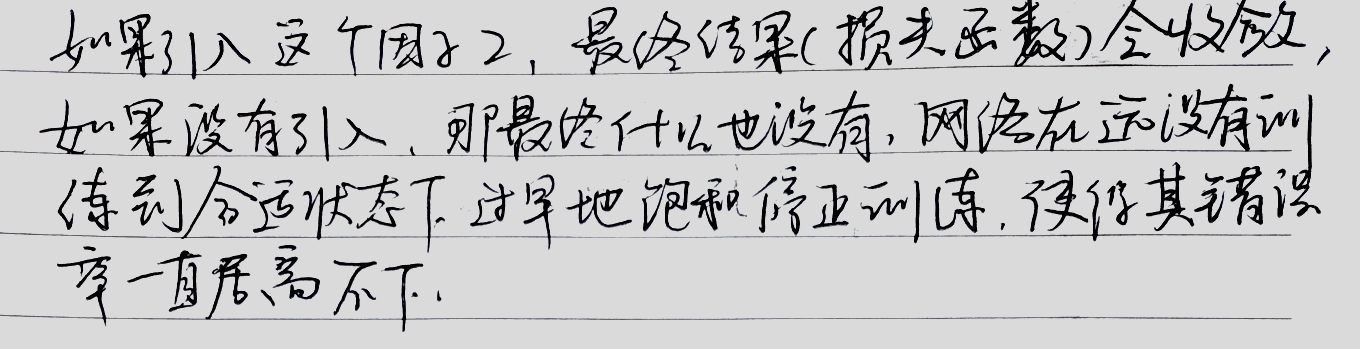 如果引入这个因子2，最终结果(损失函数)会收敛，
如果没有引入，那最终什么也没有，网络在还没有训
练到合适状态下过早地饱和停止训练，使得其错误
率一直居高不下.